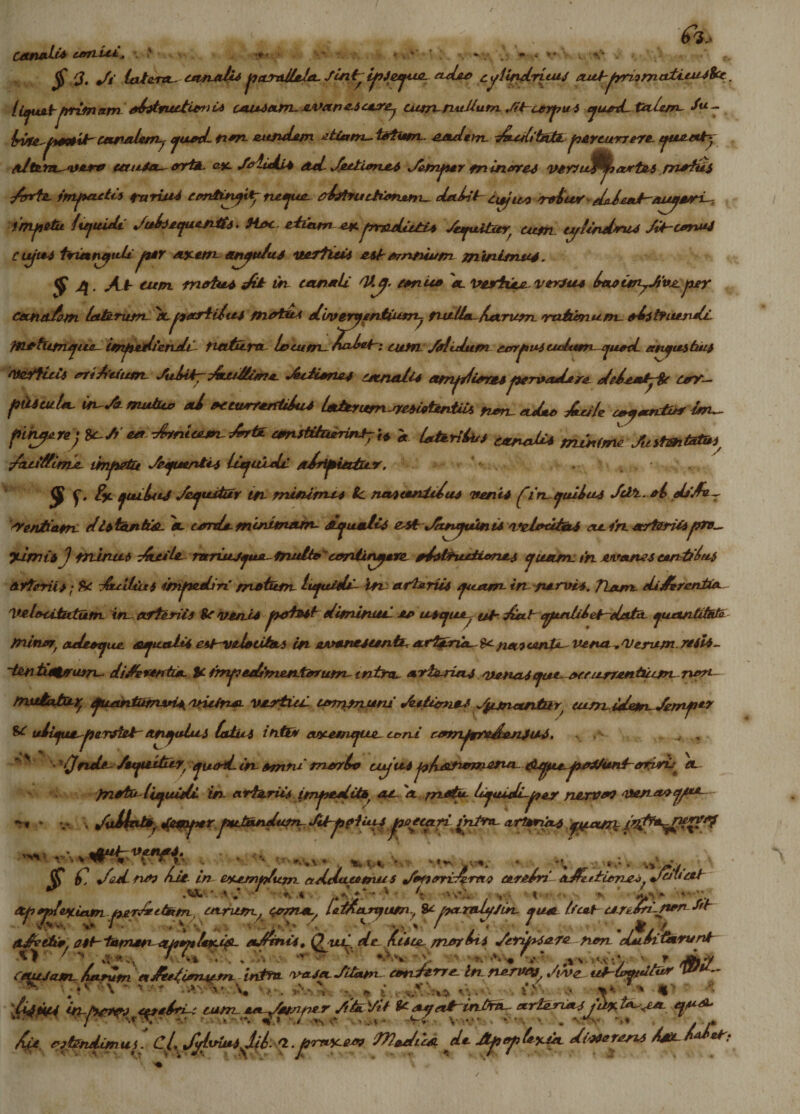 63.
canalis coniui.
§ 3. Si latera canalis parallela sint, ipseque adeo cylindricus aut prismaticus &c.
liquet primam obstructionis causam evanescere, cum nullum sit corpus quod talem su-
bire possit canalem, quod non eundem etiam totum eadem facilitate percurrere queat,
altera vero causa orta ex solidis ad sectiones semper minores versus partes motus
forte impactis rarius contingit, neque obstructionem dabit cujus robur debeat augeri,
impetu liquidi subsequentis. Hoc etiam ex praedictis sequitur, cum cylindrus sit conus
cujus trianguli per axem angulus verticis est omnium minimus.
§ 4. At cum motus fit in canali Vg. conico a vertice versus basim, sive per
canalem laterum a partibus motus divergentium, nulla harum rationum obstruendi
motumque impediendi natura locum habet: cum solidum corpus eodem quod angustius
verticis orificium subiit, facillime sectiones canalis ampliores pervadere debeat, & cor-
puscula in se mutuo ab occurrentibus laterum resistentiis non adeo facile cogantur im-
pingere; & si ea fornicem forte constituerint, is a lateribus canalis minime sustentatus
facillime impetu sequentis liquidi abripiatur.
§ 5. Ex quibus sequitur in minimis & nascentibus venis (in quibus scil. ob diffe-
rentiam distantiae a corde minimam aequalis est sanguinis velocitas ac in arteriis pro-
ximis) minus facile rariusque multo contingere obstructiones quam in evanescentibus
arteriis; & facilius impediri motum liquidi in arteriis quam in nervis. Nam differentia
velocitatum in arteriis & venis potest diminui eo usque, ut fiat qualibet data quantitate
minor, adeoque aequalis est velocitas in evanescente arteria & nascente vena. Verum resis-
tentiarum differentia & impedimentorum intra arterias venasque occurrentium non
mutatur, quantumvis vicina vertici communi sectiones sumantur, cum idem semper
& ubique perstet angulus latus inter axemque coni comprehensus.
Unde sequitur, quod in omni morbo cujus phaenomena aeque possunt oriri a
motu liquidi in arteriis impedito, ac a motu liquidi per nervos venasque
sublato, semper putandum sit potius peccari intra arterias quam intra nervos
aut venas.
§ 6. Sed nos hic in exemplum adducemus soporiferas cerebri affectiones, scilicet
apoplexiam perfectam, carum, coma, lethargum, & paralysin, quae licet cerebri non sit
affectio, est tamen apoplexiae affinis. Qui de hisce morbis scripsere non dubitarunt
causam harum affectionum intra vasa statim conferre in nervos, sive ut loquitur Wil-
lisius in poros cerebri: cum ea semper sita sit & agat intra arterias juxta ea quae
hic ostendimus. Cl. Sylvius Lib. 2. praxeos Medicae de Apoplexia disserens haec habet: